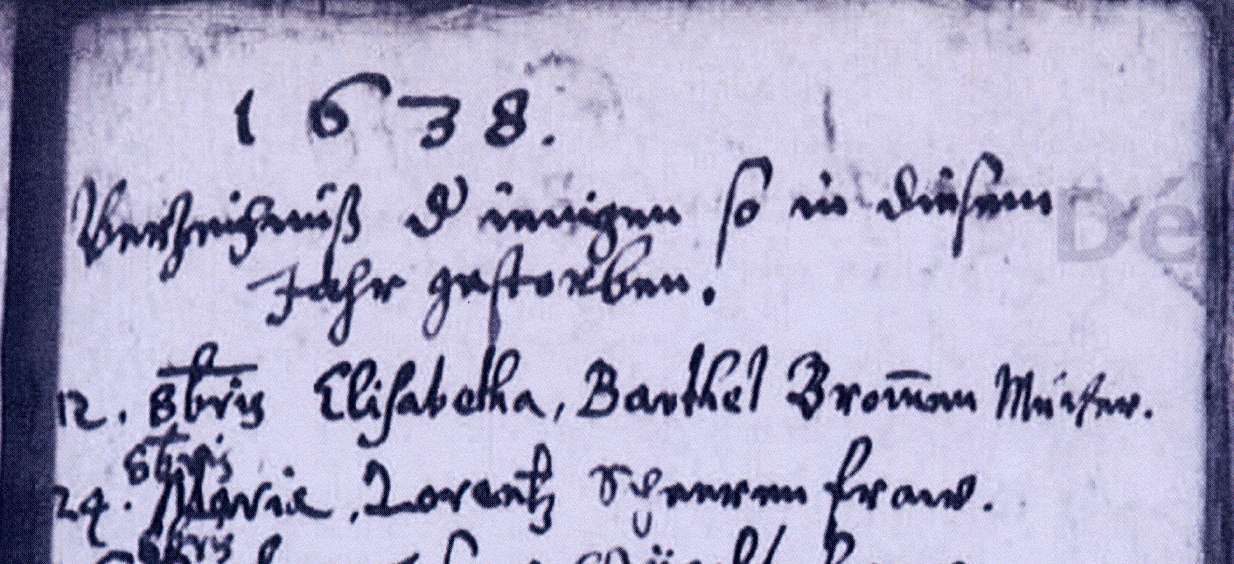 1 6 3 8.
Verzeichnüß d' ienigen so in diesem
Jahr gestorben.
12. 8bris Elisabetha, Barthel Brom̄en Mutter.
8bris
24. Maria, Lorentz fraw.
8bris
Dé